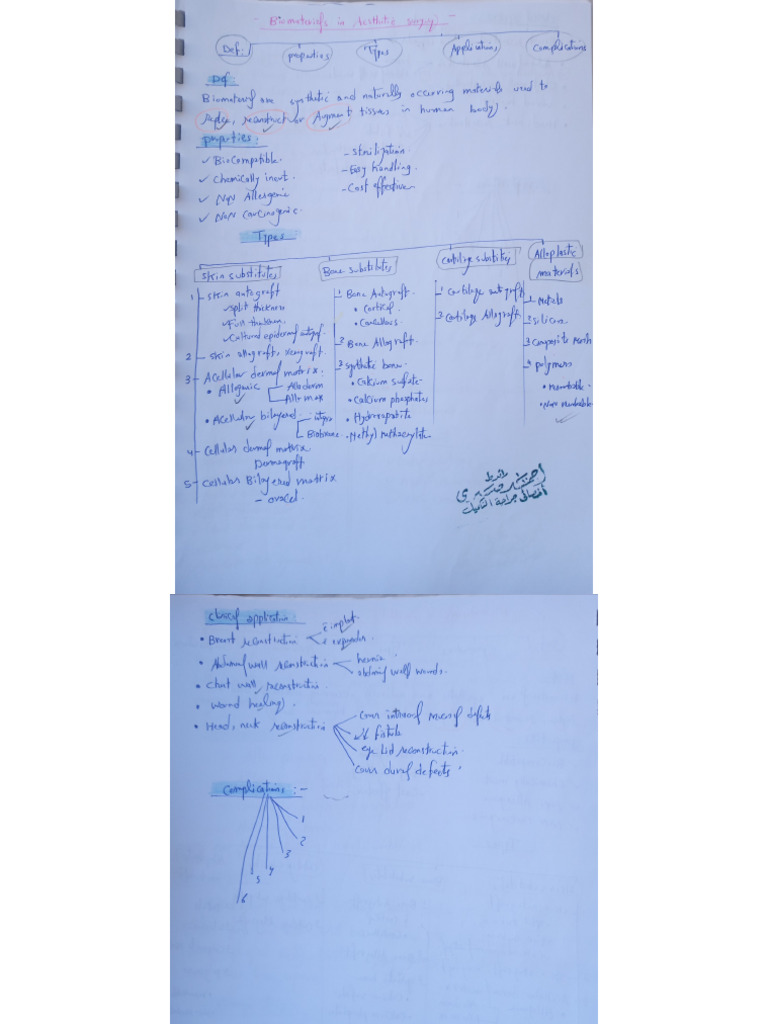 - Biomaterials in Aesthetic surgery -
Def:
properties
Types
Applications
Complications
Def
Biomaterial are synthetic and naturally occurring materials used to
replace, reconstruct or Augment tissues in human body.
properties:
✓ BioCompatible.
✓ Chemically inert.
✓ Non Allergenic
✓ Non Carcinogenic.
- Sterilization.
- Easy handling.
- Cost effective
Types
Skin substitutes
1 - Skin autograft
✓ Split thickness
✓ Full thickness
✓ Cultured epidermal autograf.
2 - Skin allograft, xenograft.
3 - Acellular dermal matrix.
• Allogenic
Alloderm
Allomax
• Acellular bilayered
integra
Biobrane
4 - Cellular dermal matrix.
Dermagraft
5 - Cellular Bilayered matrix
- oracel.
Bone substitutes
1 Bone Autograft.
• Cortical
• Cancellous
2 Bone Allograft
3 Synthetic bone.
• Calcium sulfate
• Calcium phosphate
• Hydroxyapatite
• Methyl methacrylate
Cartilage substitutes
1 Cartilage autograft
2 Cartilage Allograft
Alloplastic
materials
1 Metals
2 Silicon
3 Composite Mesh
4 polymers
• Absorbable.
• Non absorbable
أخصائي جراحة التجميل
Clinical application:
• Breast reconstruction
implant.
expander.
• Abdominal wall reconstruction
hernia
abdominal wall wounds.
• Chest wall reconstruction.
• Wound healing.
• Head, neck reconstruction
Cover intraoral mucosal defects
fistula
eye lid reconstruction.
Cover dural defects
Complications :-
1
2
3
4
5
6